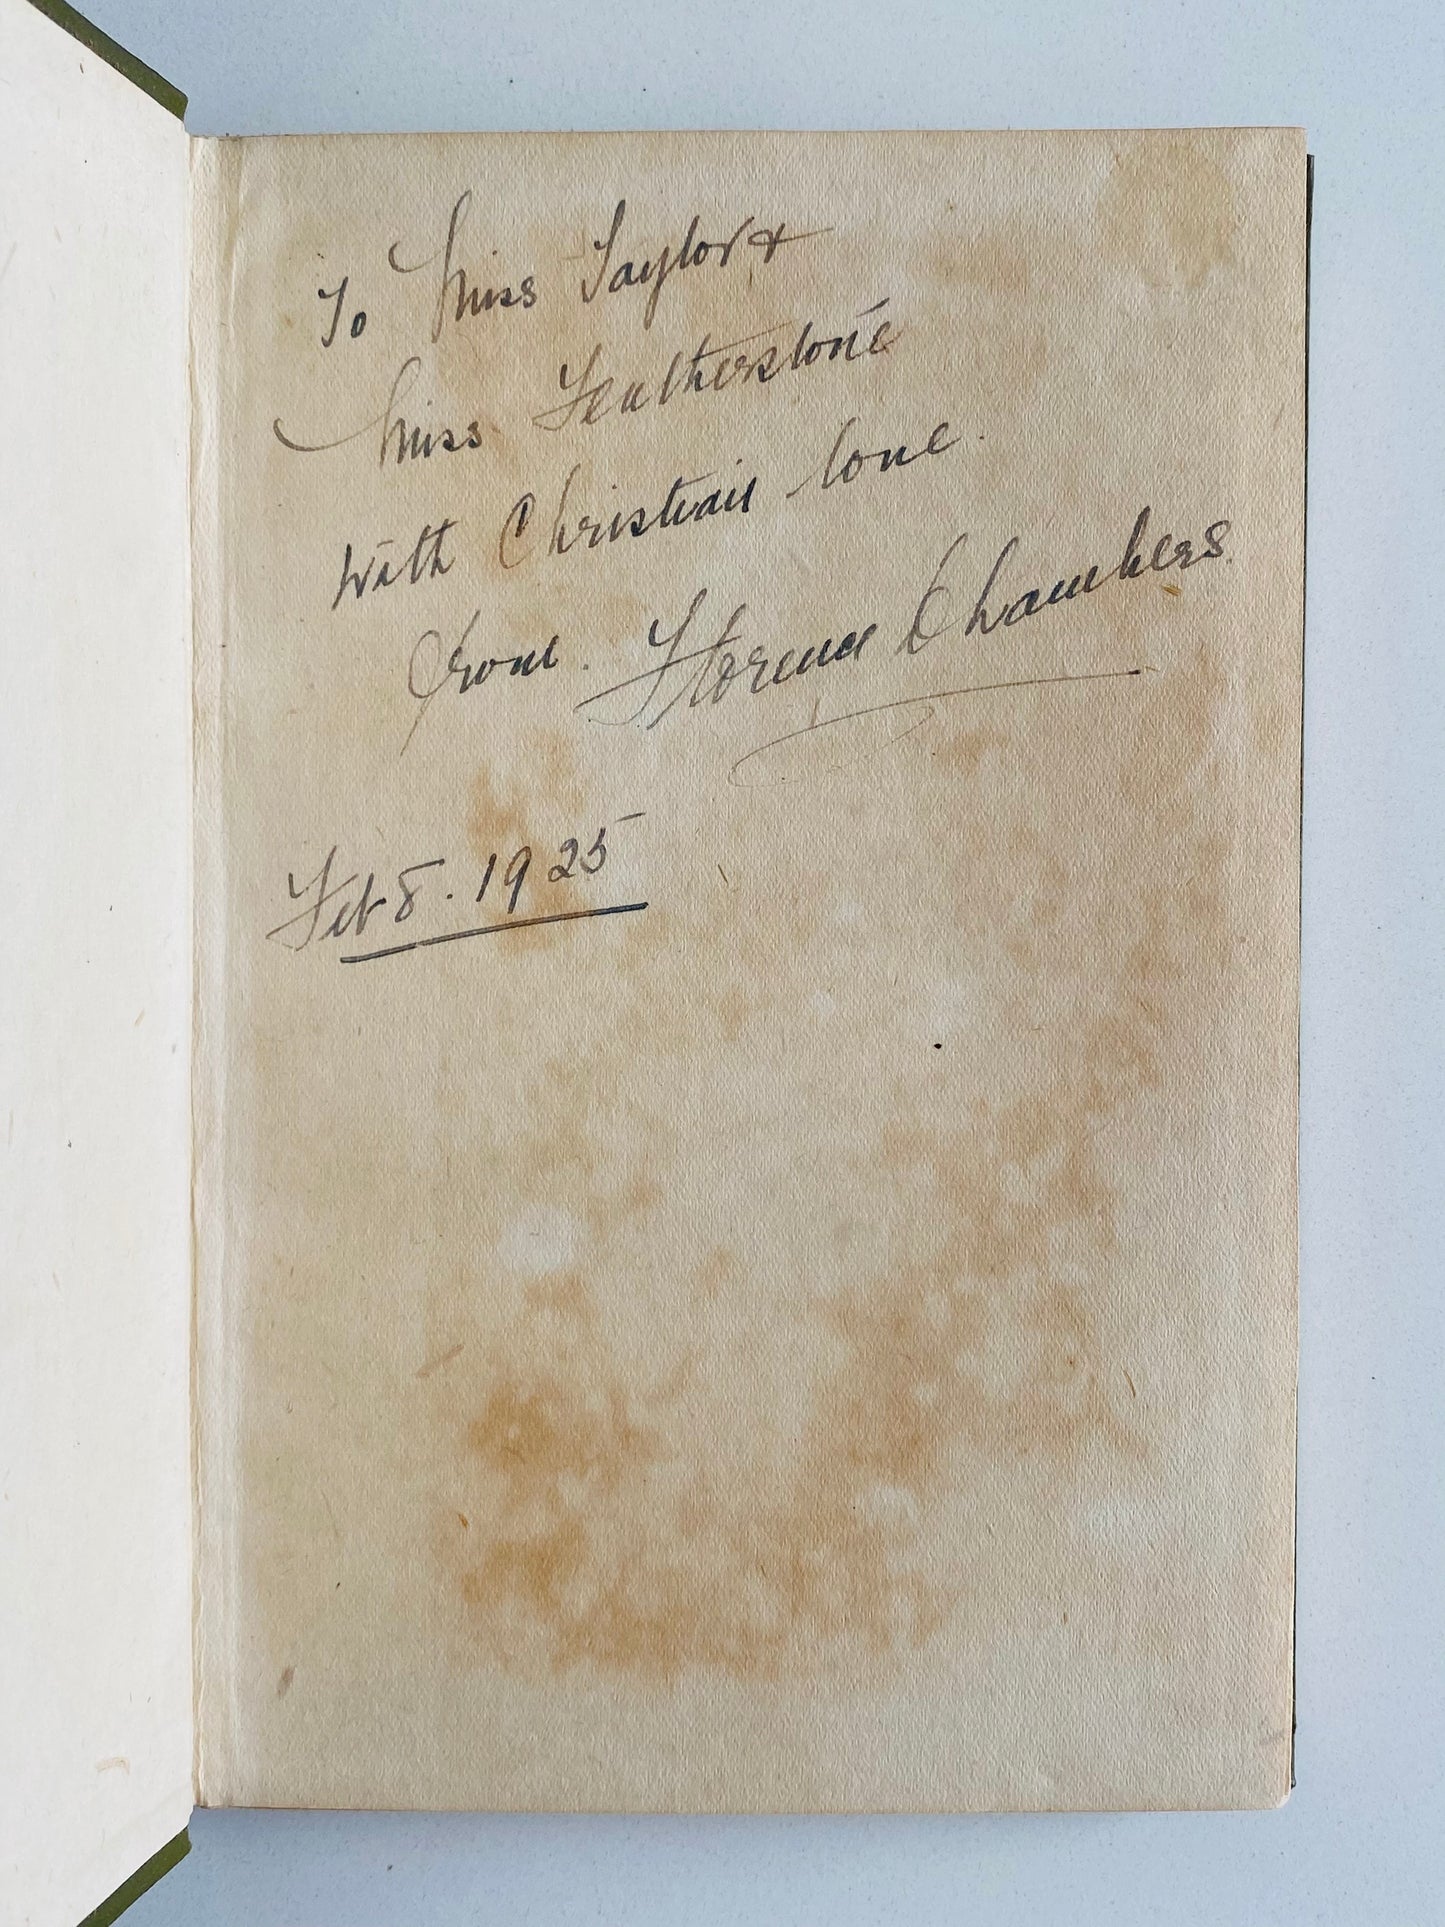 To Miss Taylor &
Miss Featherstone
with Christian love.
From. Florence Chambers.
Feb 8. 1925